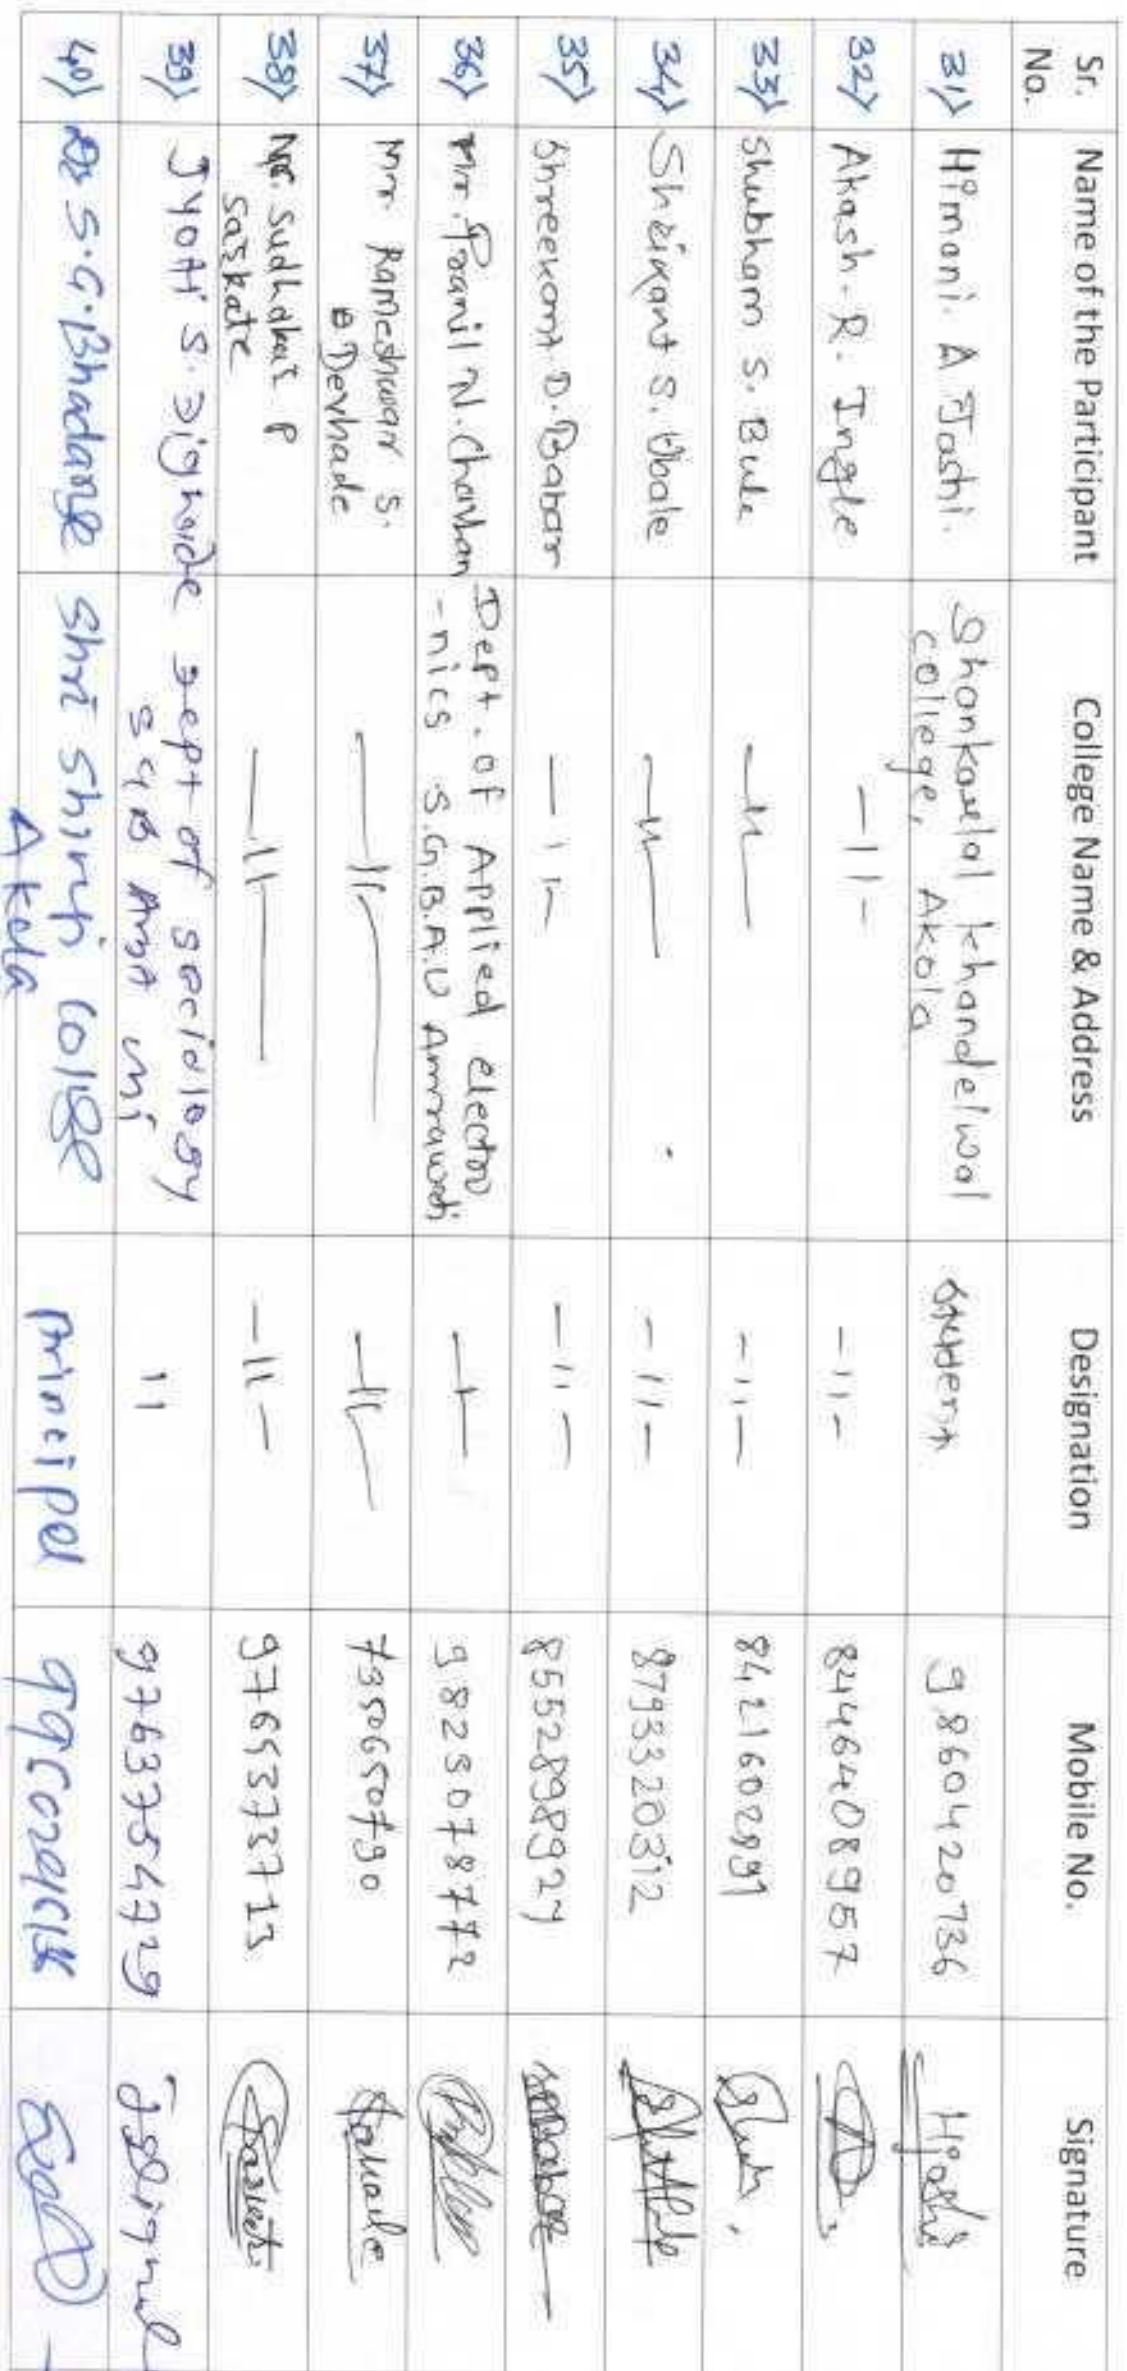 Sr. No. Name of the Participant College Name & Address Designation Mobile No. Signature
31) Himani. A Joshi. Shankarlal khandelwal college, Akola student 9860420736 Hjoshi
32) Akash. R. Ingle -11- -11- 8446408957
33) Shubham S. Bule -11- -11- 8421602891
34) Shrikant S. Ubale -11- -11- 8793320312
35) Shreekant D. Babar -11- -11- 8552898924
36) Mr. Pranil N. Chavhan Dept. of Applied electro -nics S.G.B.A.U Amravati -11- 9823078772
37) Mr. Rameshwar S. Devhade -11- -11- 7350650790
38) Mr. Sudhakar P Sarkate -11- -11- 9765373713
39) Jyoti S. Dighade Dept of sociology 11 9763754729
40) Dr S.G. Bhadange Shri Shivaji College Akola Principal